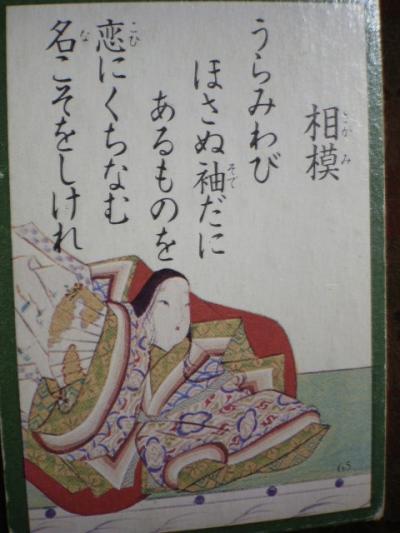 相模
うらみわび
ほさぬ袖だに
あるものを
恋にくちなむ
名こそをしけれ
65